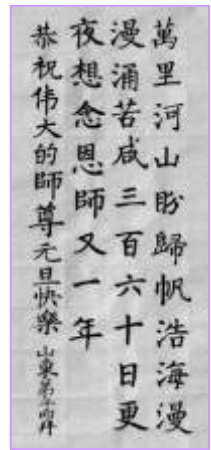 萬里河山盼歸帆浩海漫
漫涌苦咸三百六十日更
夜想念恩師又一年
恭祝伟大的師尊元旦快樂 山東弟子